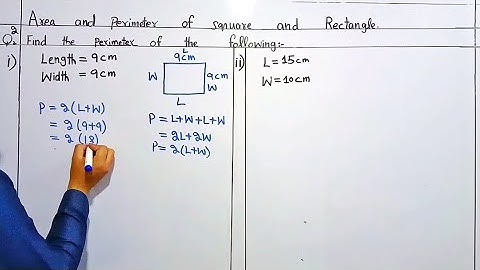 Area and Perimeter of square and Rectangle.
Q.2 Find the perimeter of the following:-
i) Length = 9cm
Width = 9cm
L
9cm
W
9cm
W
L
P = 2(L+W)
= 2(9+9)
= 2(18)
P = L+W+L+W
= 2L+2W
P = 2(L+W)
ii) L = 15cm
W = 10cm